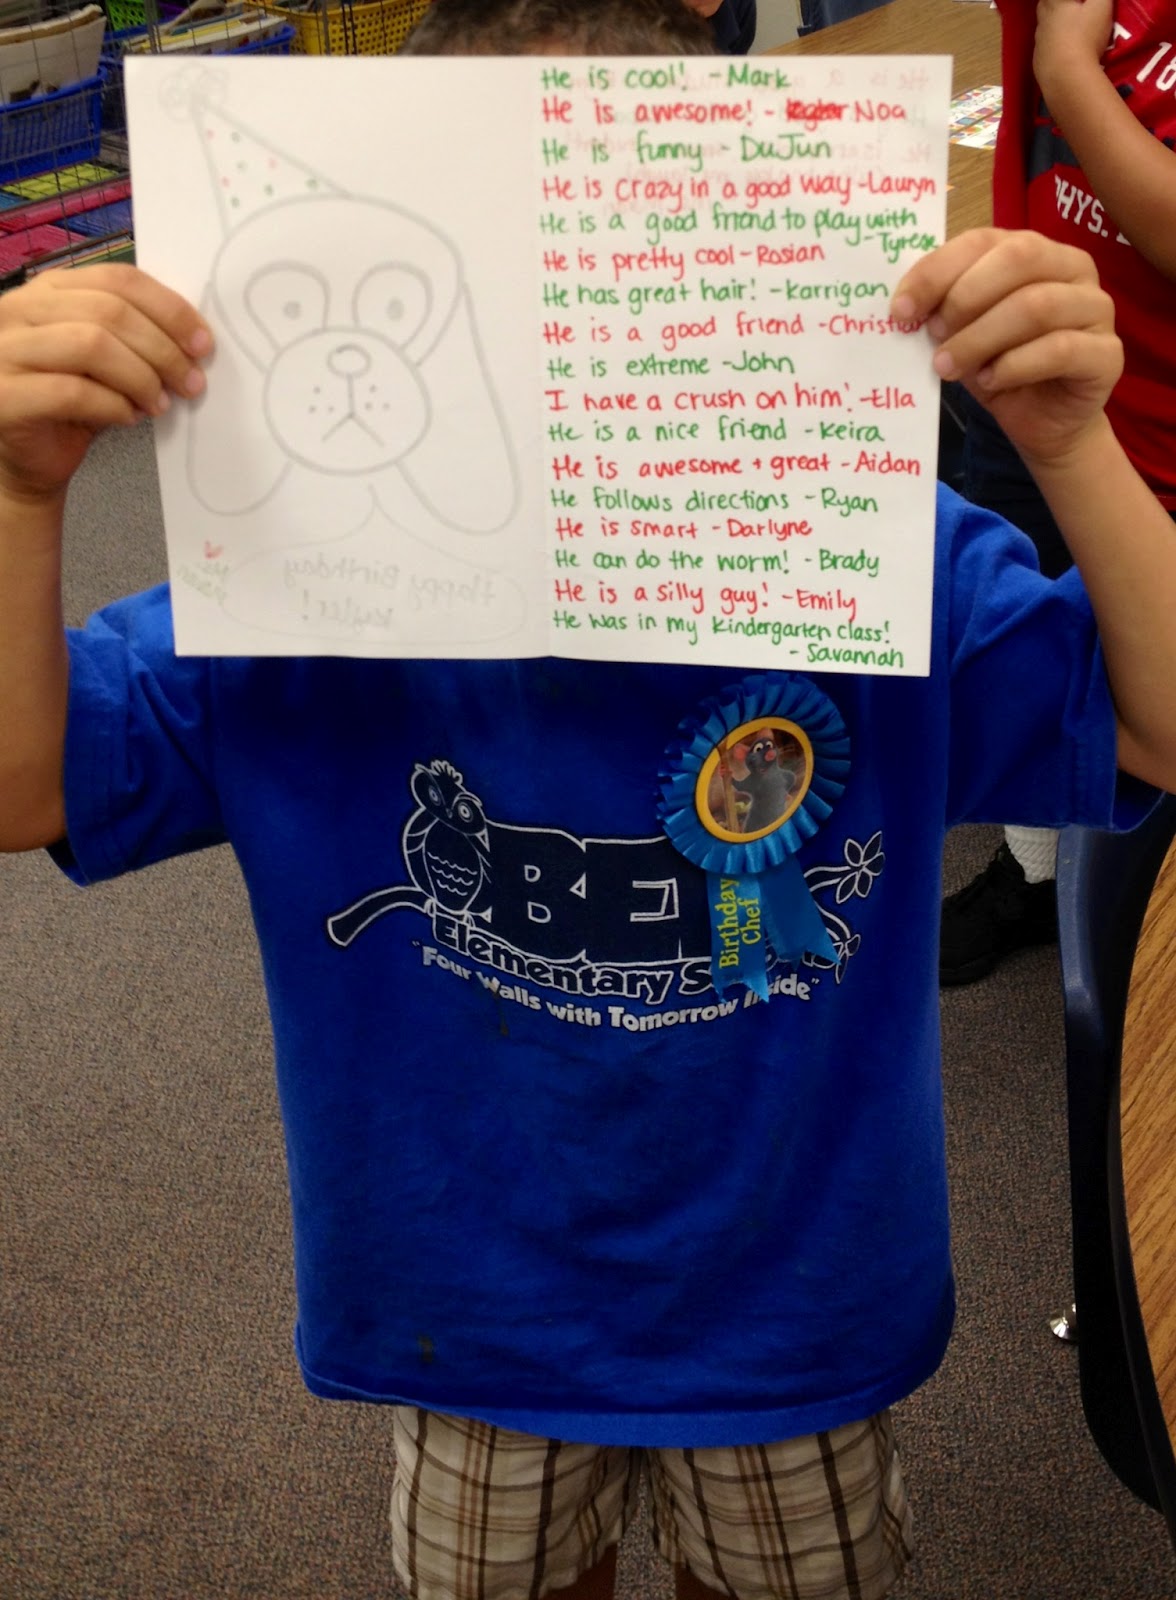 He is cool! - Mark
He is awesome! - Noa
He is funny - DuJun
He is crazy in a good way - Lauryn
He is a good friend to play with
- Tyrese
He is pretty cool - Rosian
He has great hair! - Karrigan
He is a good friend - Christian
He is extreme - John
I have a crush on him! - Ella
He is a nice friend - Keira
He is awesome + great - Aidan
He follows directions - Ryan
He is smart - Darlyne
He can do the worm! - Brady
He is a silly guy! - Emily
He was in my kindergarten class!
- Savannah
Happy Birthday
Kyler!
BE
Elementary
"Four Walls with Tomorrow Inside"
Birthday
Chef
18
PHYS.